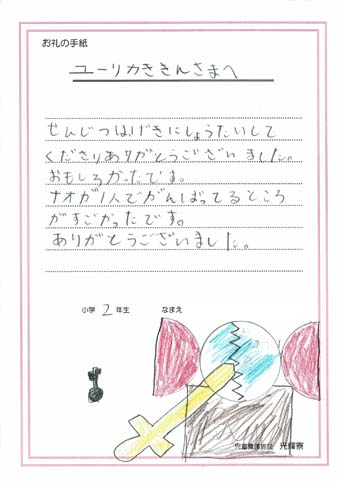 お礼の手紙
ユーリカききんさまへ
せんじつはげきにしょうたいして
くださりありがとうございました。
おもしろかったです。
ナオが1人でがんばってるところ
がすごかったです。
ありがとうございました。
小学 2 年生 なまえ
児童養護施設 光輝寮